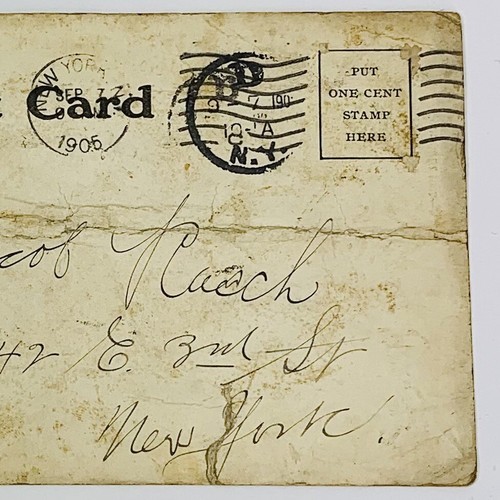 NEW YORK
SEP 7
1905
Card
9-7 190
12-A
N.Y.
PUT
ONE CENT
STAMP
HERE
cob Rasch
42 E. 3rd St
New York.